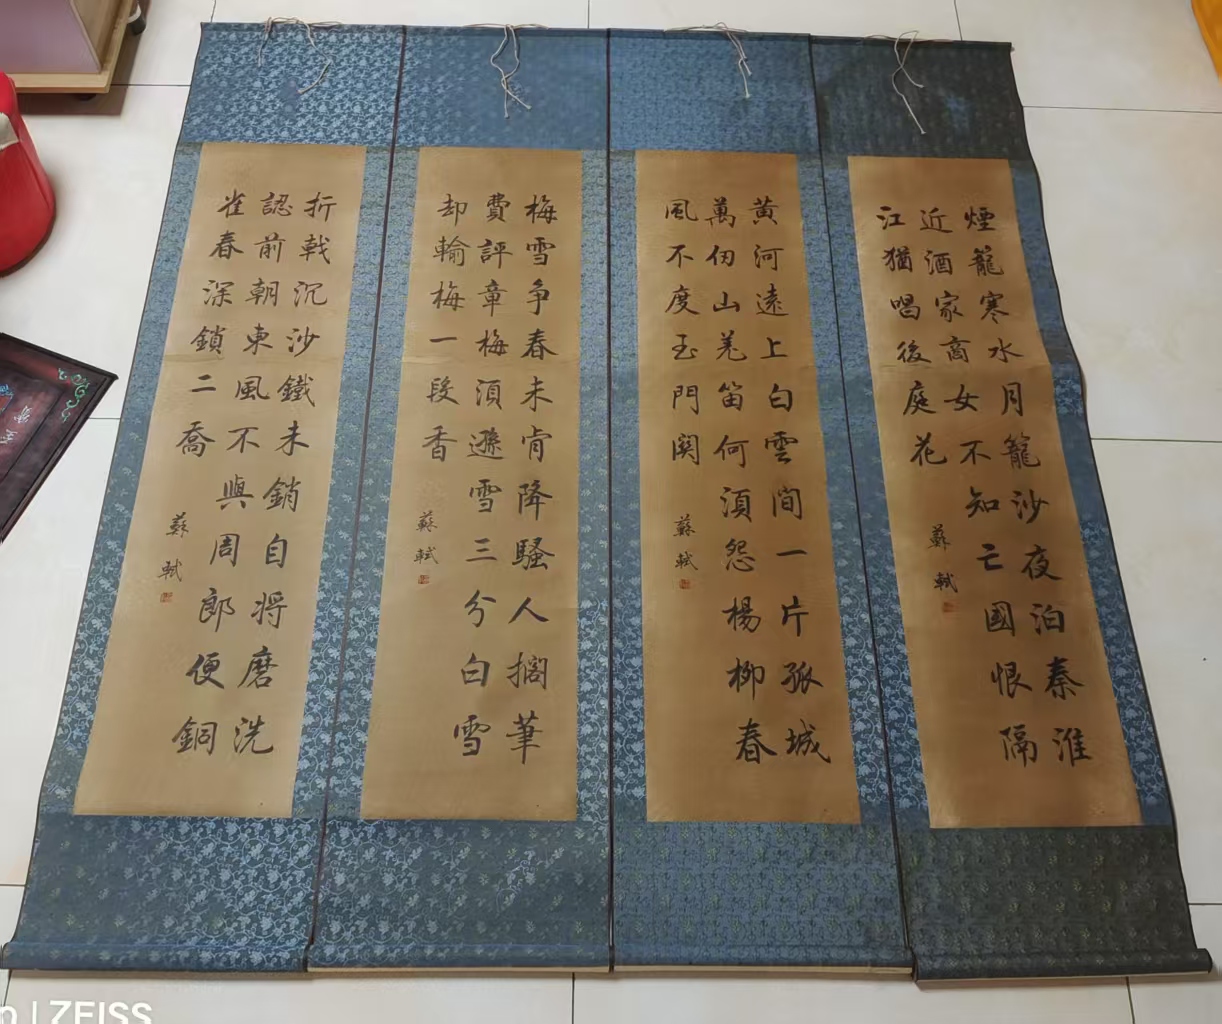 煙籠寒水月籠沙夜泊秦淮
近酒家商女不知亡國恨隔
江猶唱後庭花
蘇軾
黄河遠上白雲間一片孤城
萬仞山羌笛何須怨楊柳春
風不度玉門関
蘇軾
梅雪争春未肯降騷人擱筆
費評章梅須遜雪三分白雪
却輸梅一段香
蘇軾
折戟沉沙鐵未銷自将磨洗
認前朝東風不與周郎便銅
雀春深鎖二喬
蘇軾
ZEISS